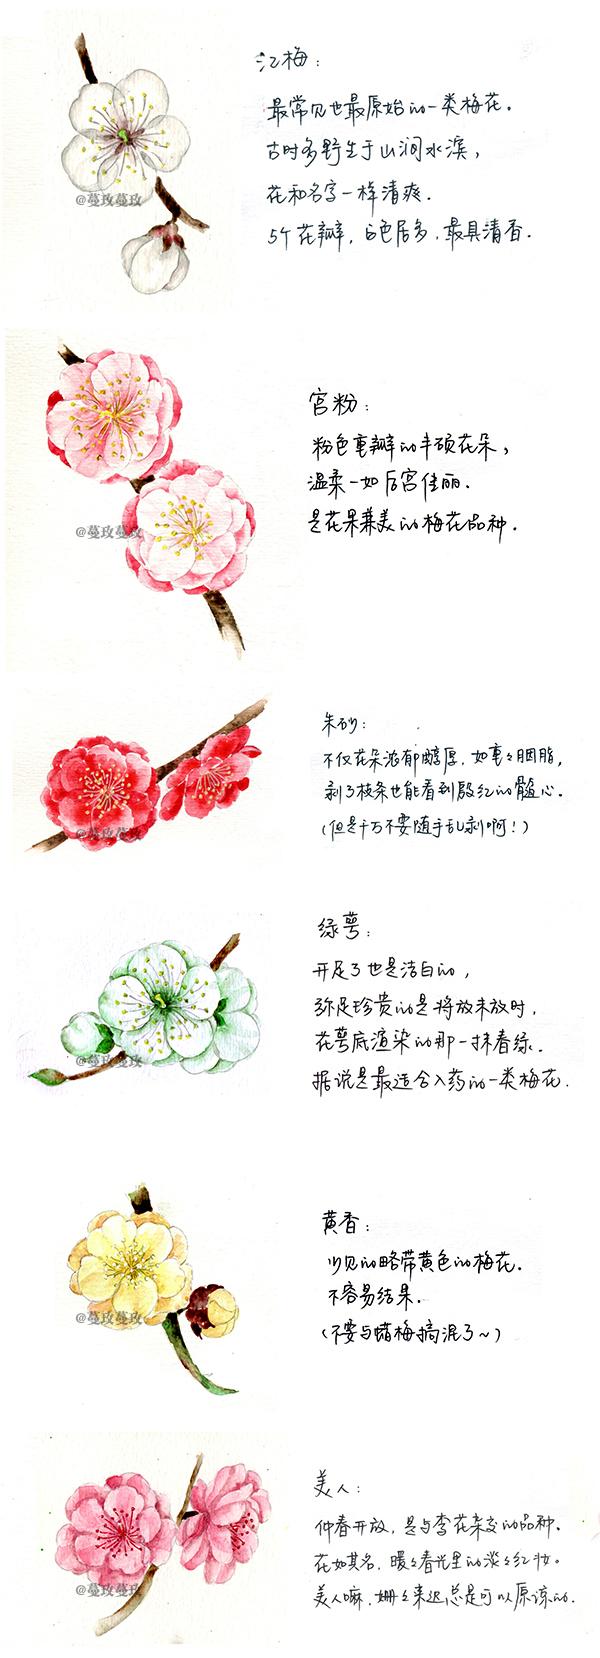 江梅：
最常见也最原始的一类梅花．
古时多野生于山涧水滨，
花和名字一样清爽．
5个花瓣，白色居多，最具清香．
@蔓玫蔓玫
宫粉：
粉色重瓣的丰硕花朵，
温柔一如后宫佳丽．
是花果兼美的梅花品种．
@蔓玫蔓玫
朱砂：
不仅花朵浓郁醇厚，如重々胭脂，
剥了枝条也能看到殷红的髓心．
(但是千万不要随手乱剥啊！)
@蔓玫蔓玫
绿萼：
开足了也是洁白的，
弥足珍贵的是将放未放时，
花萼底渲染的那一抹春绿．
据说是最适合入药的一类梅花．
@蔓玫蔓玫
黄香：
少见的略带黄色的梅花．
不容易结果．
(不要与蜡梅搞混了~)
@蔓玫蔓玫
美人：
仲春开放，是与李花杂交的品种．
花如其名，暖々春光里的淡々红妆。
美人嘛，姗々来迟总是可以原谅的．
@蔓玫蔓玫